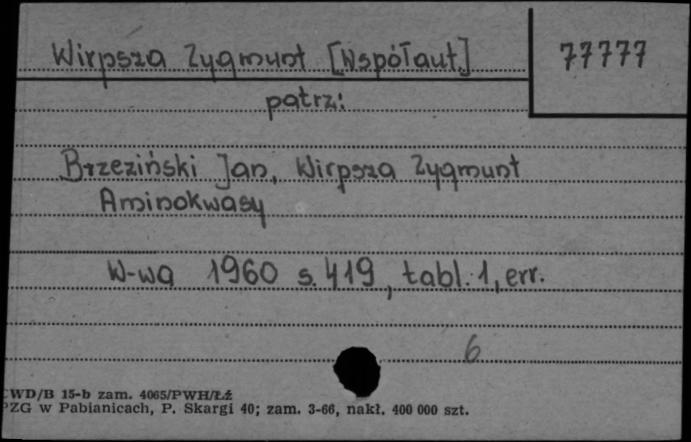 Wirpsza Zygmunt [Współaut.]
77777
patrz:
Brzeziński Jan, Wirpsza Zygmunt
Aminokwasy
W-wa 1960 s. 419, tabl. 1, err.
6
WD/B 15-b zam. 4065/PWH/Łź
PZG w Pabianicach, P. Skargi 40; zam. 3-66, nakł. 400 000 szt.